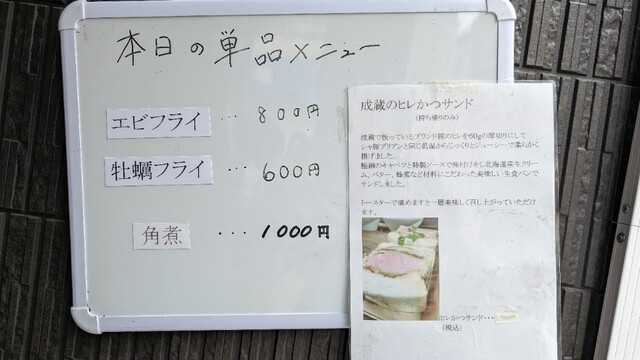 本日の単品メニュー
エビフライ ・・・ 800円
牡蠣フライ ・・・ 600円
角煮 ・・・ 1000円
成蔵のヒレかつサンド
(持ち帰りのみ)
成蔵で扱っているブランド豚のヒレを60gの厚切りにして
シャ豚ブリアンと同じ低温からじっくりとジューシーで柔らかく
揚げました。
極細のキャベツと特製ソースで味付けをし北海道産生クリー
ム、バター、蜂蜜など材料にこだわった美味しい生食パンで
サンドしました。
トースターで温めますと一層美味しく召し上がっていただけ
ます。
ヒレかつサンド・・・
(税込)